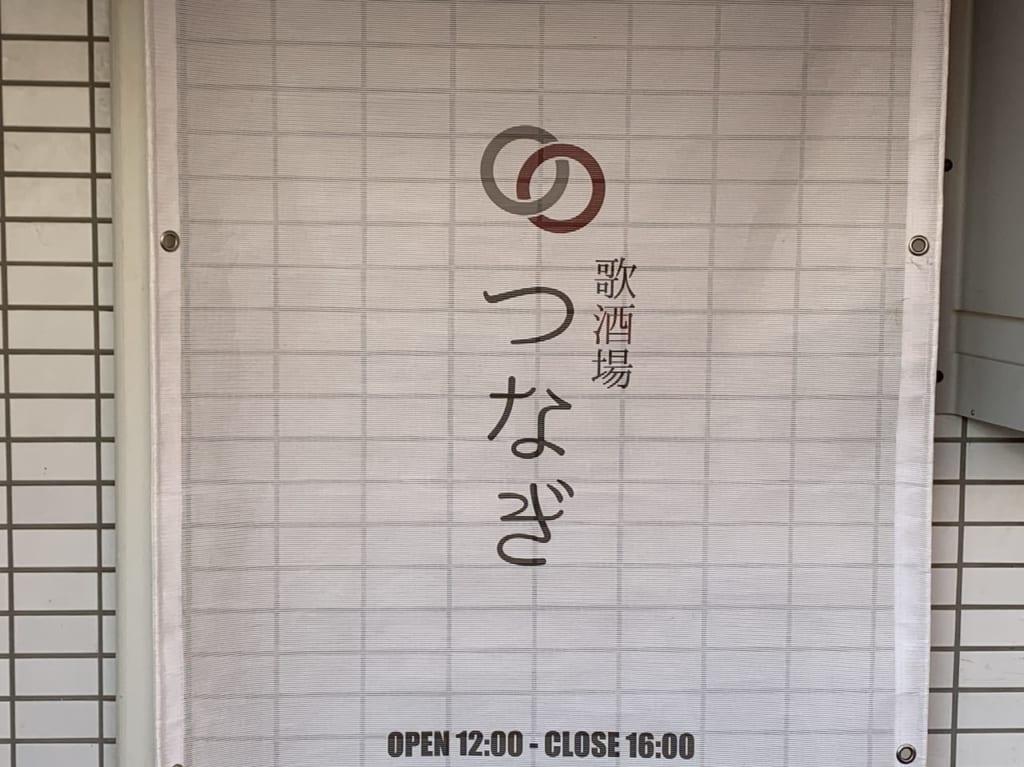 歌酒場
つなぎ
OPEN 12:00 - CLOSE 16:00